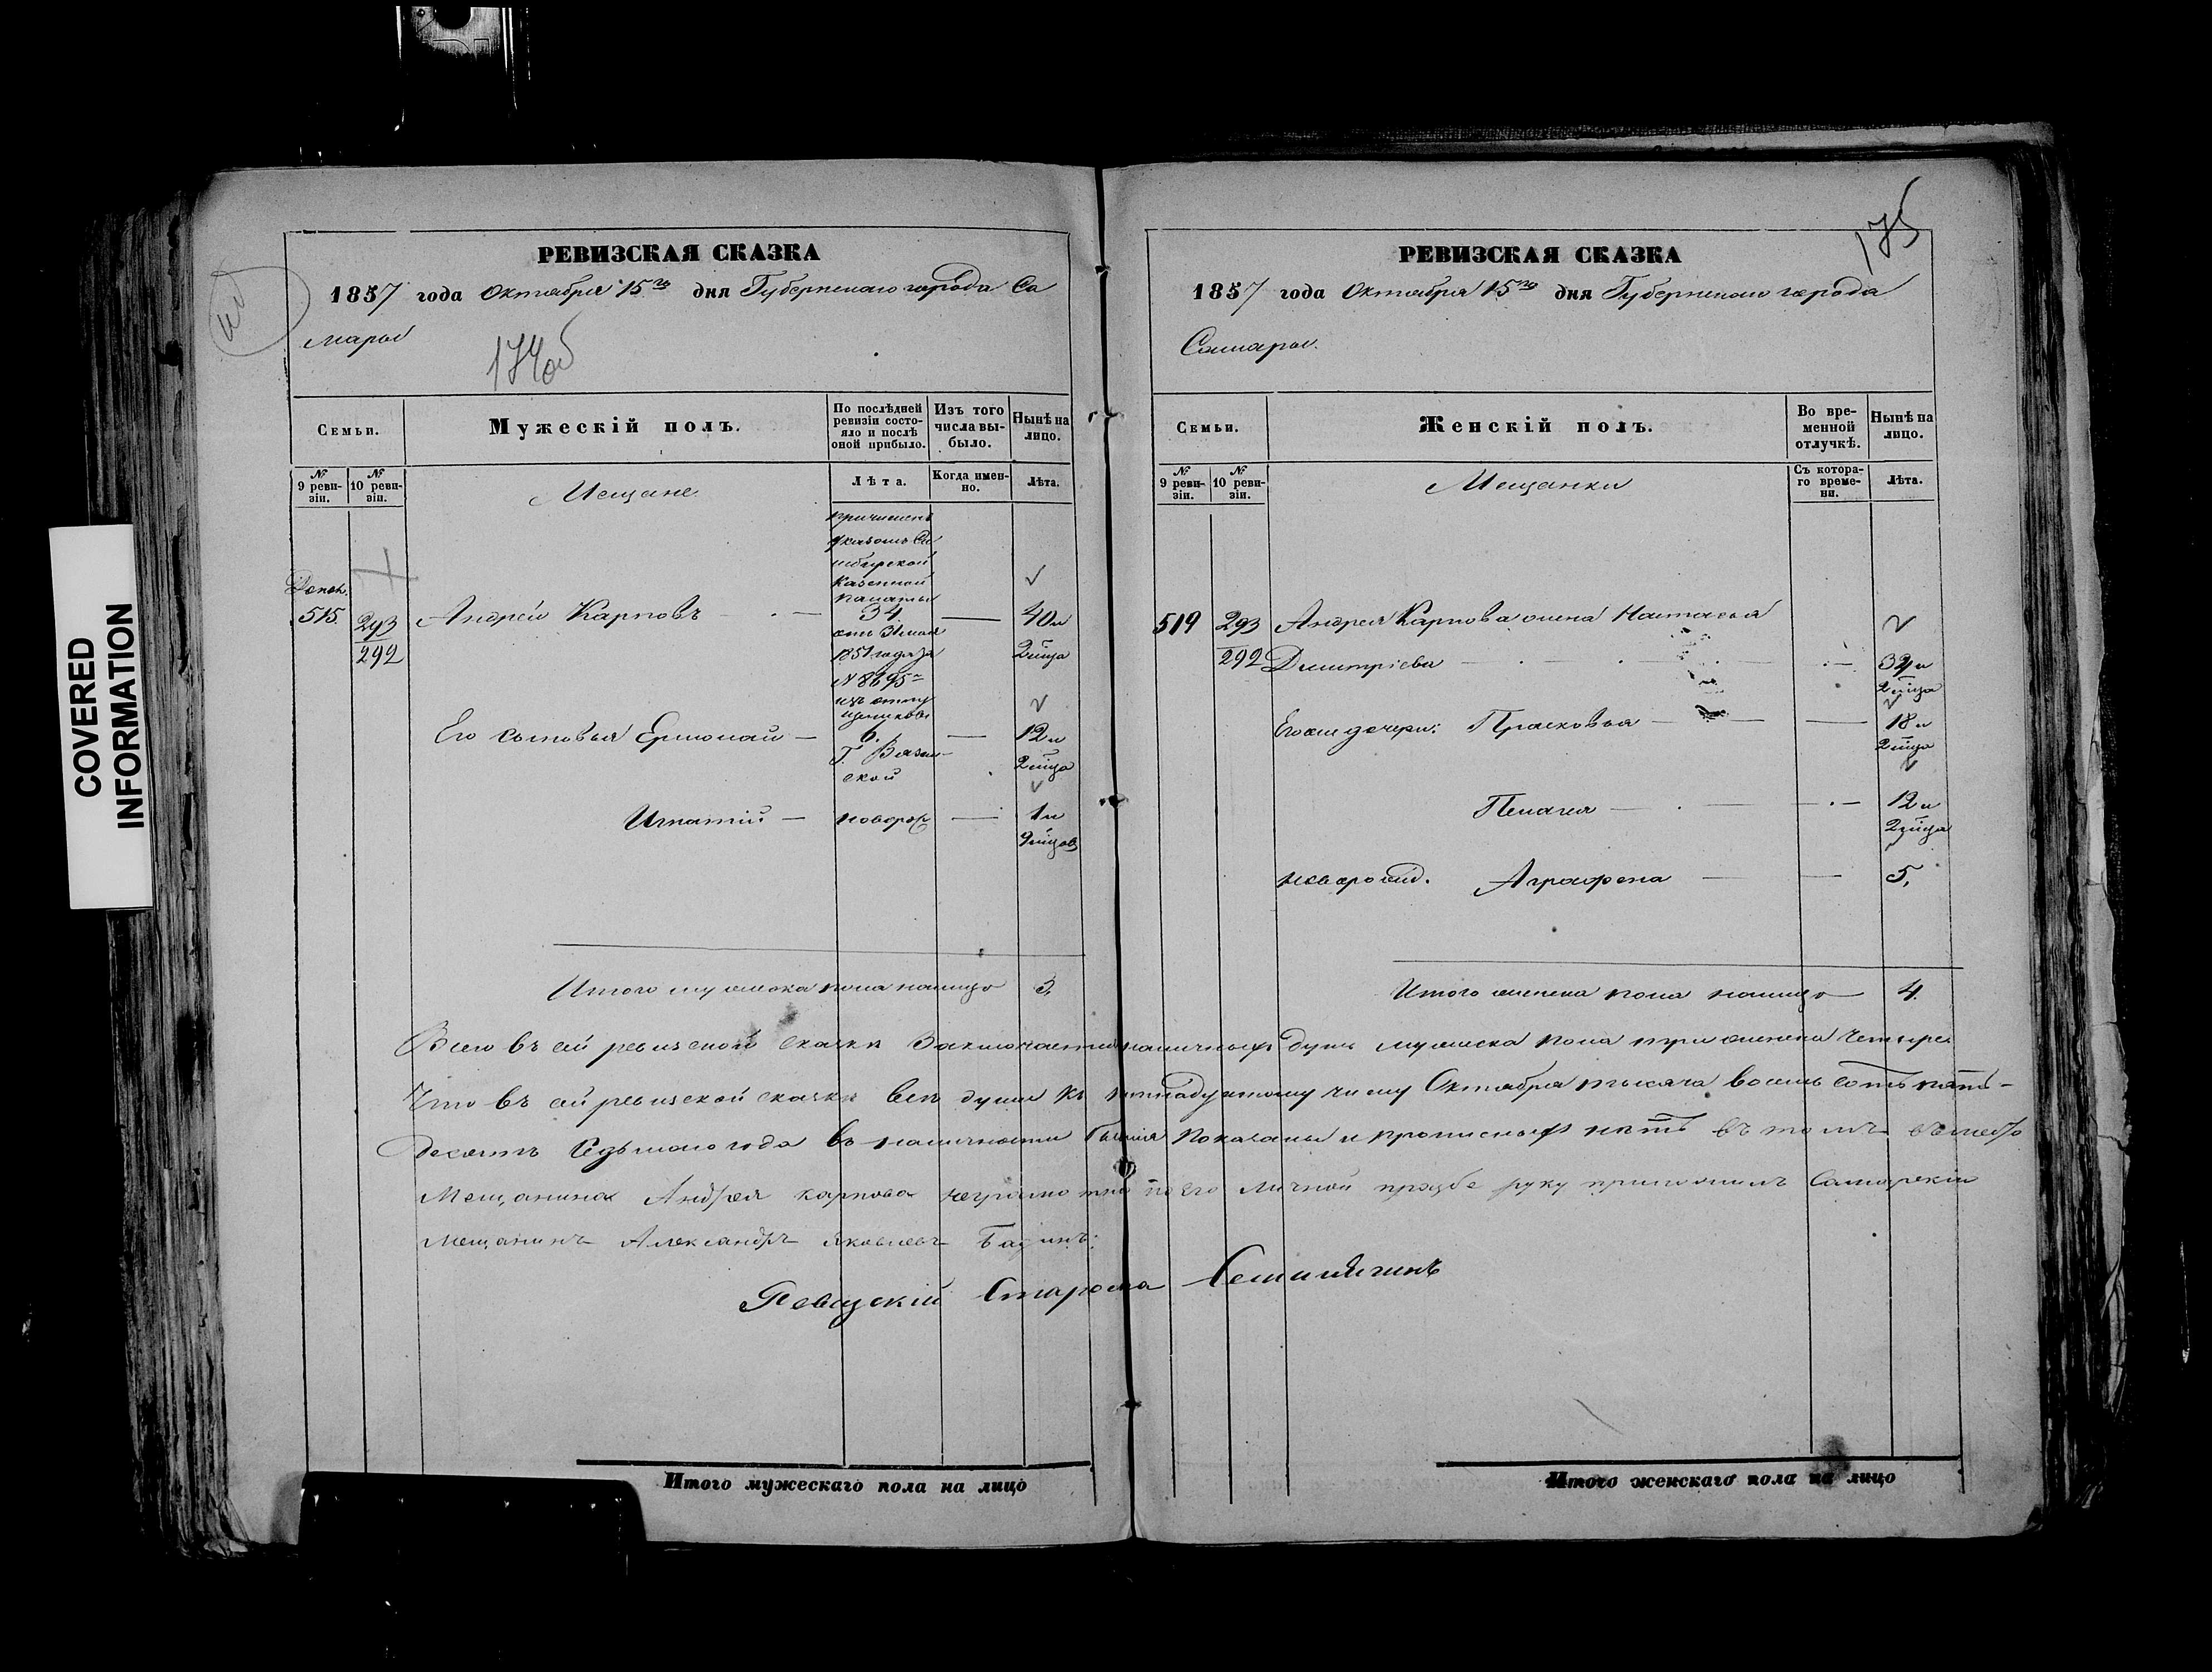 COVERED
INFORMATION
РЕВИЗСКАЯ СКАЗКА
1857 года Октября 15го дня Губернскаго города Са
мары
174об
Семьи.
Мужескій полъ.
По послѣдней ревизіи состо-
яло и послѣ
оной прибыло.
Изъ того
числа вы-
было.
Нынѣ на
лицо.
№
9 реви-
зіи.
№
10 реви-
зіи.
Мещане
Лѣта.
Когда имен-
но.
Лѣта.
причислен
указомъ Си
мбирской
Казенной
палаты
515.
293
292
Андрей Карповъ
34
40 и
2 м̃ца
отъ 31 мая
1851 года за
№ 8695
Его сыновья Ермолай
6.
12 и
2 м̃ца
Г.
Игнатій
новорож
1 и
9 м̃цов
Итого мужеска пола налицо 3.
РЕВИЗСКАЯ СКАЗКА
175
1857 года Октября 15го дня Губернскаго города
Самары.
Семьи.
Женскій полъ.
Во вре-
менной
отлучкѣ.
Нынѣ на
лицо.
№
9 реви-
зіи.
№
10 реви-
зіи.
Мещанки
Съ котора-
го време-
ни.
Лѣта.
519 293 Андрея Карпова жена Настасья
292 Димитріева
2 м̃ца
Егоже дочери: Прасковья 18 и
2 м̃ца
Пелагея 12 и
2 м̃ца
новорожд. Аграфена 5.
Итого женска пола налицо 4.
Всего въ сей ревизской сказки Заключается наличныхъ душъ мужеска пола три женска четыре
Что въ сей ревизской сказки все души къ пятнадцатому числу Октября тысяча восемь сотъ пять-
десятъ Седьмого года въ наличности бывшія показаны и прописныхъ нѣтъ въ томъ вместо
Мещанина Андрея карпова неграмотно по его личной прозбе руку приложилъ Самарскій
мещанинъ Александръ яковлевъ
Ревизскій Староста
Итого мужескаго пола на лицо
Итого женскаго пола на лицо